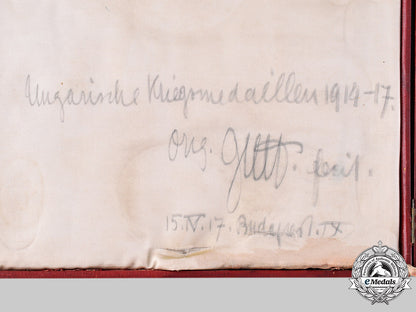 Ungarische Kriegsmedaillen 1914-17.
Orig. fecit.
15.IV.17. Budapest. IX
eMedals